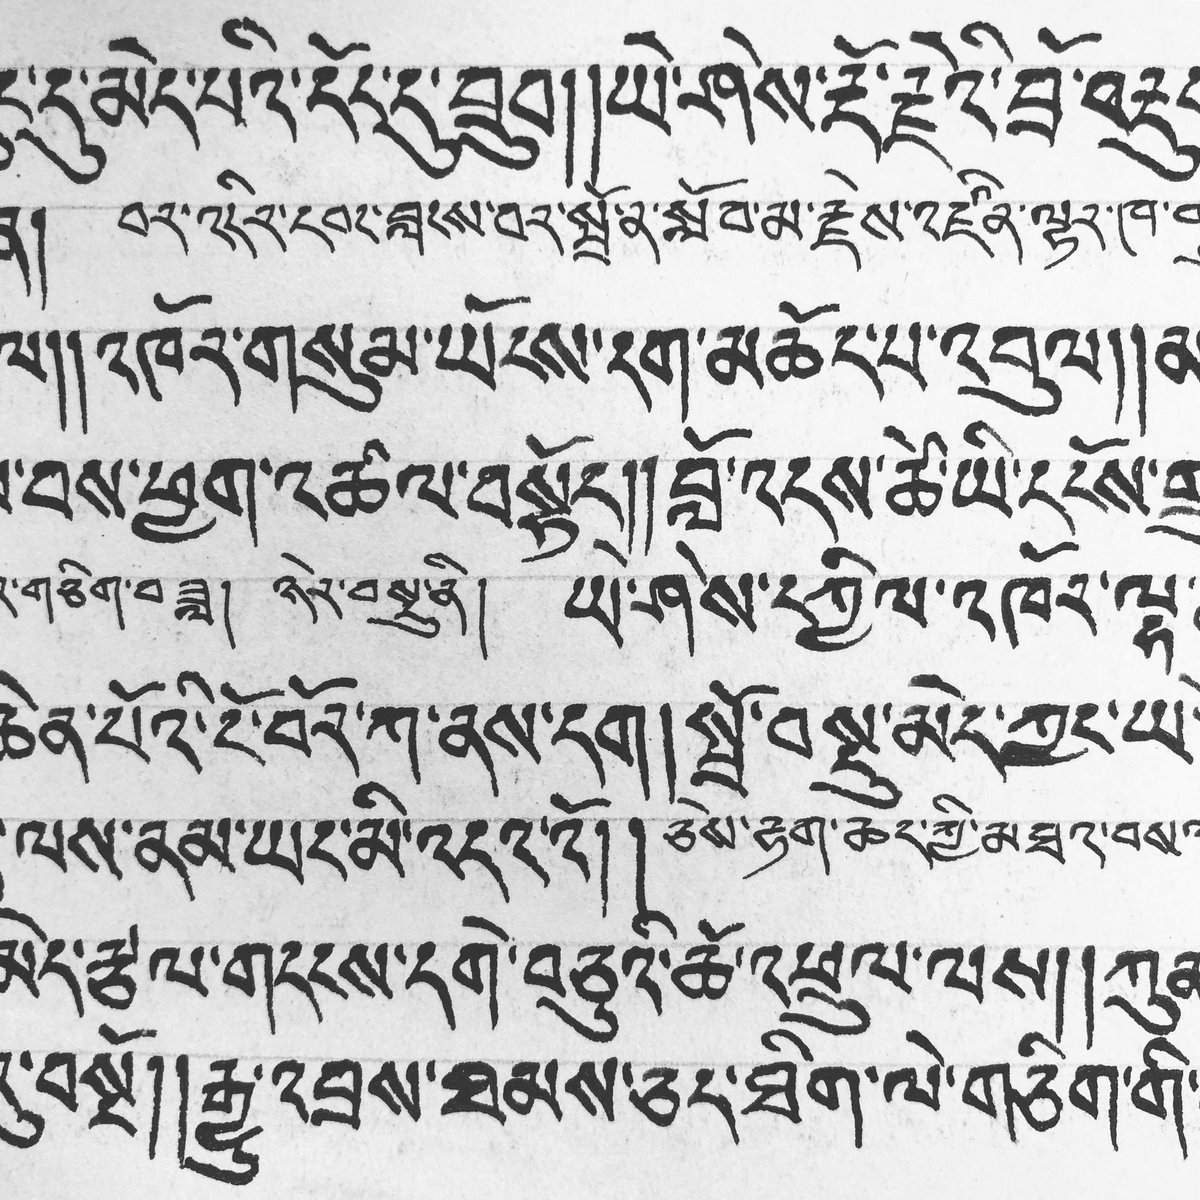 དུ་མེད་པའི་དོན་དུ་བླུབ།། ཡེ་ཤེས་རྡོ་རྗེའི་བླ་
བར་འདིར་དབང་བླངས་བར་སྤྲོ་ན་སློབ་མ་རྗེས་འཛིན་ལྟར་ཁ་
ལ།། འཁོར་གསུམ་ཡོངས་དག་མཆོད་པ་འབུལ།། མ
བས་ཕྱག་འཚལ་བསྟོད།། བློ་འདས་ཆེ་ཡི་དངོས་
གཅིག་བཟླ། ཉེར་བསྡུ་ནི། ཡེ་ཤེས་དཀྱིལ་འཁོར་ལྷ་
ཆེན་པོའི་ངོ་བོར་ཀ་ནས་དག། སྤྲོ་བསྡུ་མེད་ཀྱང་ཡེ
ལས་ནམ་ཡང་མི་འདའ་འོ།། ཅེས་རྟག་ཆད་ཀྱི་མཐའ་བས
མེད་རྩལ་གདངས་དགེ་བཅུའི་ཆོ་འཕྲུལ་ལས།། ཀུན
བསྔོ།། རྒྱུ་འབྲས་ཐམས་ཅད་ཐིག་ལེ་གཅིག་གི་